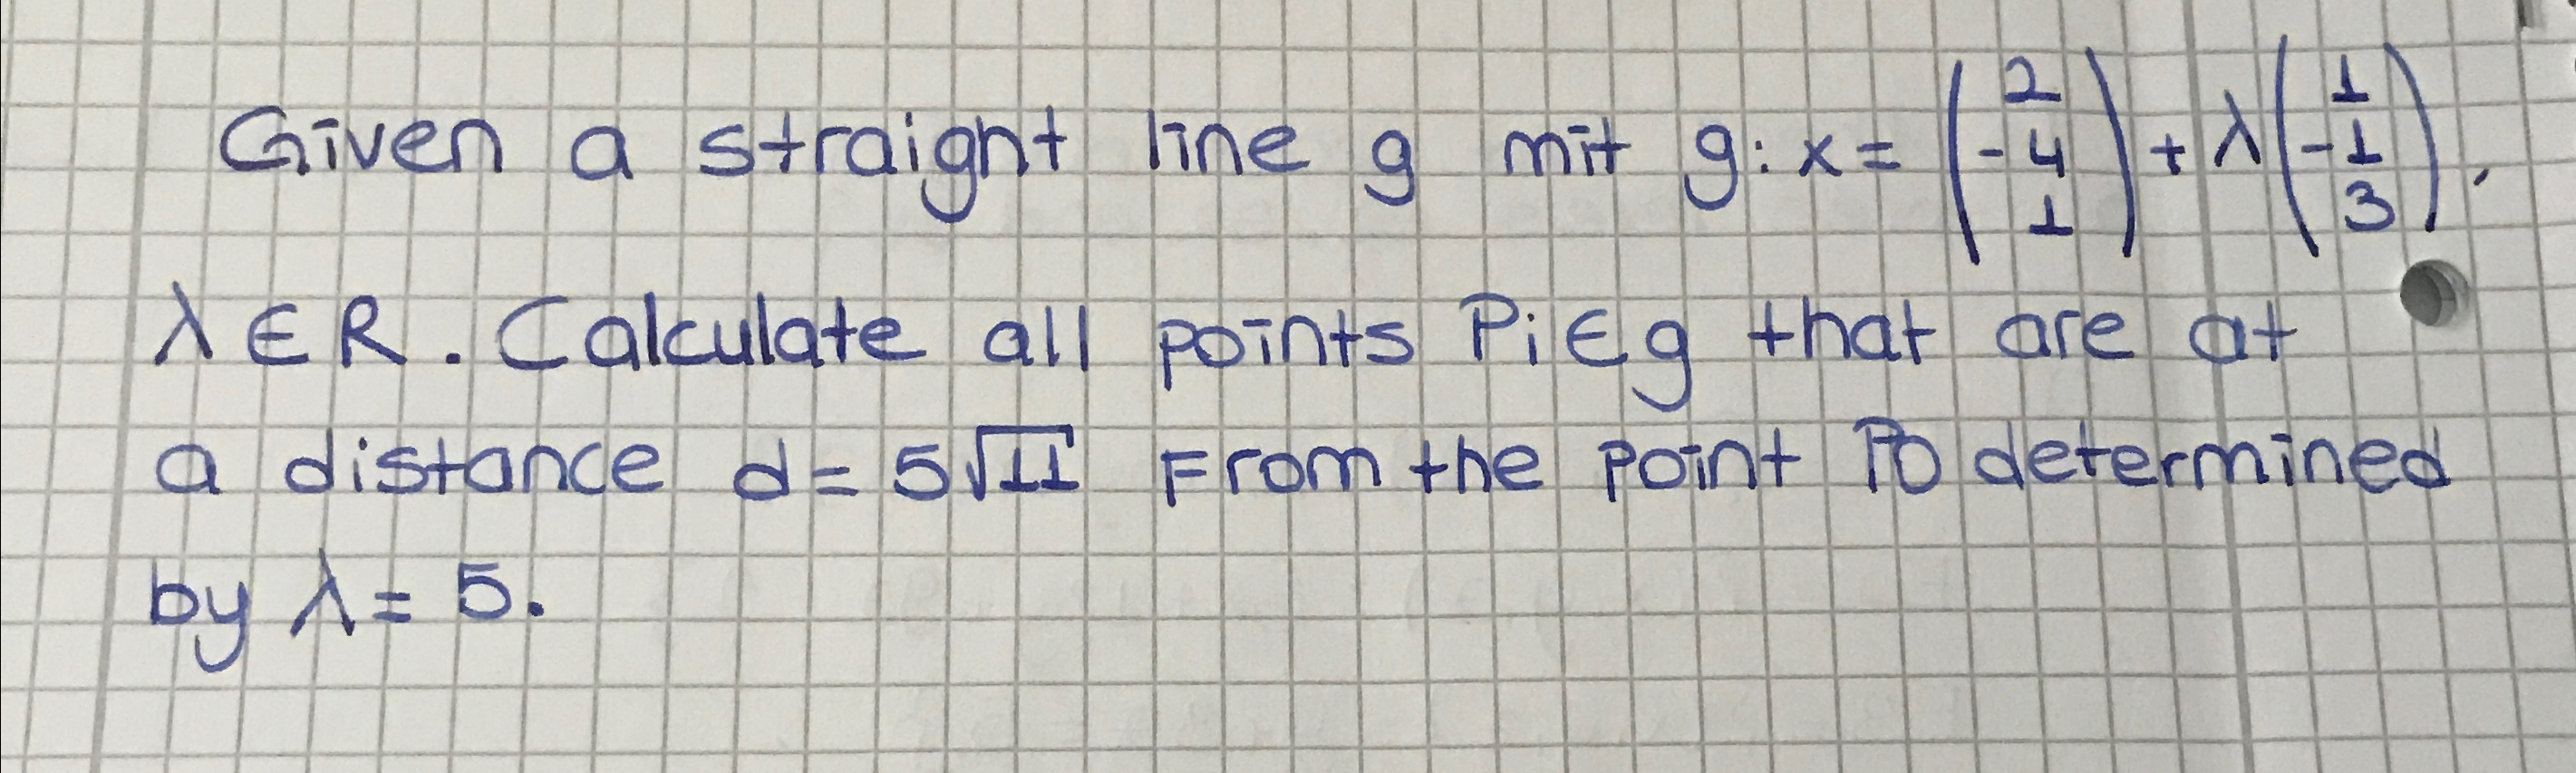 Given a straight line g mit g: x = (2 -4 1) + λ(1 -1 3),
λ ∈ R. Calculate all points Pi ∈ g that are at
a distance d = 5√11 From the point P0 determined
by λ = 5.